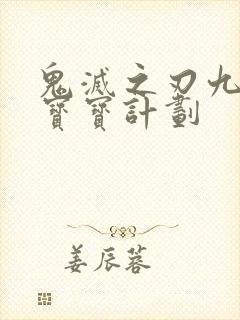 鬼滅之刃九
寶寶計劃
姜辰蓉